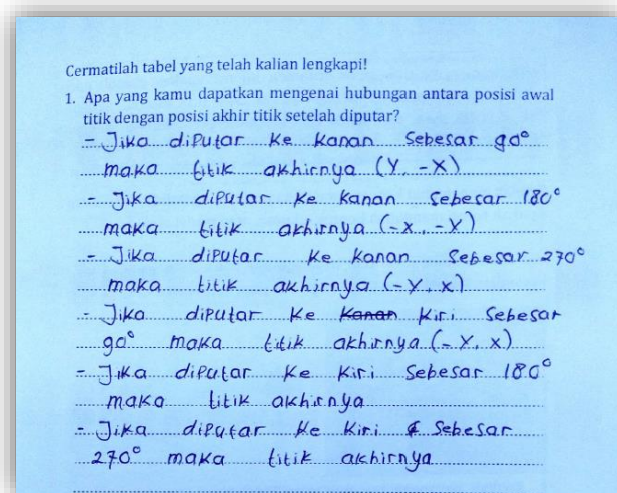 Cermatilah tabel yang telah kalian lengkapi!
1. Apa yang kamu dapatkan mengenai hubungan antara posisi awal
titik dengan posisi akhir titik setelah diputar?
- Jika diputar ke kanan sebesar 90°
maka titik akhirnya (y, -x)
- Jika diputar ke kanan sebesar 180°
maka titik akhirnya (-x, -y)
- Jika diputar ke kanan sebesar 270°
maka titik akhirnya (-y, x)
- Jika diputar ke kanan kiri sebesar
90° maka titik akhirnya (-y, x)
- Jika diputar ke kiri sebesar 180°
maka titik akhirnya
- Jika diputar ke kiri sebesar
270° maka titik akhirnya